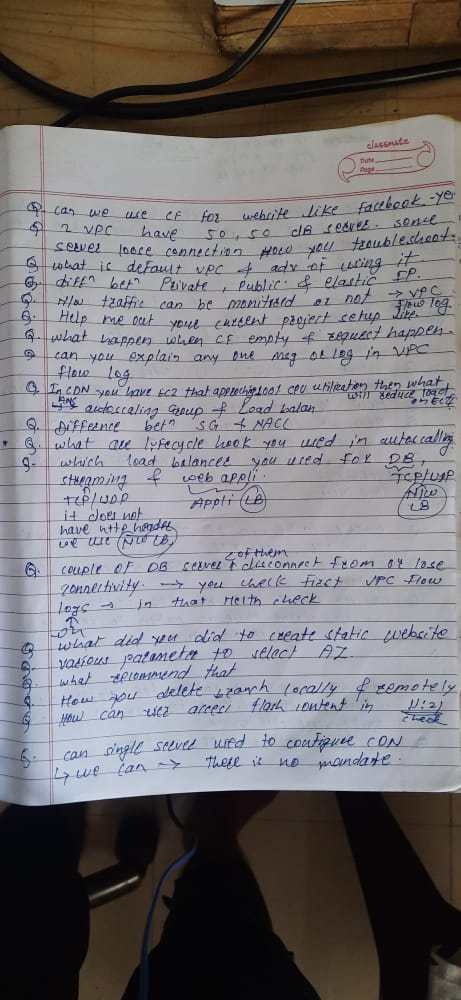 classmate
Date
Page
Q. can we use CF for website like facebook - yes
Q 2 VPC have 50, 50 dB server. some
server loose connection How you troubleshoot.
Q what is default VPC & adv of using it.
Q. diffn betn Private, Public & elastic IP.
Q. N/w traffic can be monitrerd or not → VPC flow log
Q. Help me out your current project setup like.
Q. what happen when CF empty & request happen.
Q can you explain any one msg of log in VPC
flow log.
Q. In CDN you have EC2 that approching 100% CPU utilization then what will reduce load on EC2
Ans autoscaling group & Load balan
Q. Diffrence betn SG & NACL
Q. what are lyfecycle hook you used in autoscalling.
Q. which load balancer you used for DB,
streaming & web appli.
TCP/UDP Appli LB TCP/UDP
it does not N/w LB
have http header
we use N/w LB.
Q. couple of DB server & of them disconnect from or lose
connectivity. → you check first VPC flow
logs → in that Helth check
on
Q what did you did to create static website.
Q. various parameter to select AZ.
Q. what recommend that
Q. How you delete branch locally & remotely
Q How can user access flash content in 11:21
check
Q. can single server used to configure CDN
↳ we can → there is no mandate.